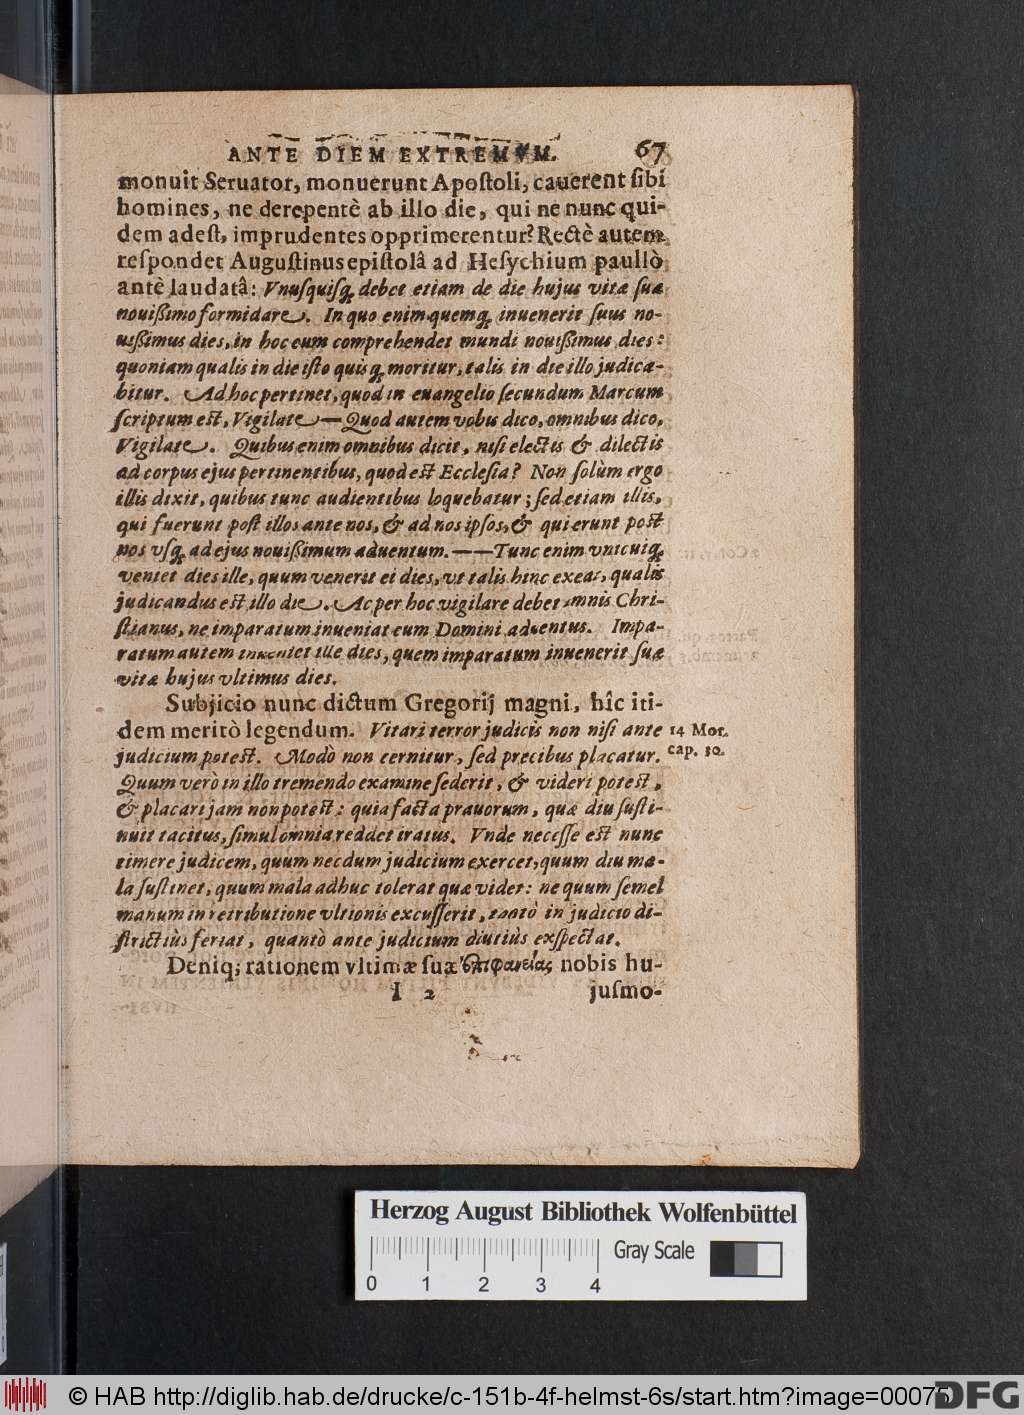 ANTE DIEM EXTREMVM. 67
monuit Seruator, monuerunt Apoſtoli, cauerent ſibi
homines, ne derepentè ab illo die, qui ne nunc qui-
dem adeſt, imprudentes opprimerentur? Rectè autem
reſpondet Auguſtinus epiſtolâ ad Heſychium paullò
antè laudatâ: Vnuſquiſq; debet etiam de die hujus vitæ ſuæ
nouißimo formidare. In quo enim quemq; inuenerit ſuus no-
uißimus dies, in hoc eum comprehendet mundi nouißimus dies:
quoniam qualis in die iſto quisq; moritur, talis in die illo judica-
bitur. Ad hoc pertinet, quod in euangelio ſecundum Marcum
ſcriptum eſt, Vigilate — Quod autem vobis dico, omnibus dico,
Vigilate. Quibus enim omnibus dicit, niſi electis & dilectis
ad corpus ejus pertinentibus, quod eſt Eccleſia? Non ſolùm ergo
illis dixit, quibus tunc audientibus loquebatur; ſed etiam illis,
qui fuerunt poſt illos ante nos, & ad nos ipſos, & qui erunt poſt
nos vſq; ad ejus nouißimum aduentum. — — Tunc enim vnicuiq;
veniet dies ille, quum venerit ei dies, vt talis hinc exeat, qualis
judicandus eſt illo die. Ac per hoc vigilare debet omnis Chri-
ſtianus, ne imparatum inueniat eum Domini aduentus. Impa-
ratum autem inueniet ille dies, quem imparatum inuenerit ſuæ
vitæ hujus vltimus dies.
Subjicio nunc dictum Gregorij magni, hîc iti-
dem meritò legendum. Vitari terror judicis non niſi ante
14 Mor.
judicium poteſt. Modò non cernitur, ſed precibus placatur.
cap. 30.
Quum verò in illo tremendo examine ſederit, & videri poteſt,
& placari jam non poteſt: quia facta prauorum, quæ diu ſuſti-
nuit tacitus, ſimul omnia reddet iratus. Vnde neceſſe eſt nunc
timere judicem, quum necdum judicium exercet, quum diu ma-
la ſuſtinet, quum mala adhuc tolerat quæ videt: ne quum ſemel
manum in retributione vltionis excuſſerit, tantò in judicio di-
ſtrictiùs feriat, quantò ante judicium diutiùs exſpectat.
Deniq; rationem vltimæ ſuæ ἐπιφανείας nobis hu-
I 2 juſmo-
Herzog August Bibliothek Wolfenbüttel
0 1 2 3 4 Gray Scale
© HAB http://diglib.hab.de/drucke/c-151b-4f-helmst-6s/start.htm?image=00075
DFG